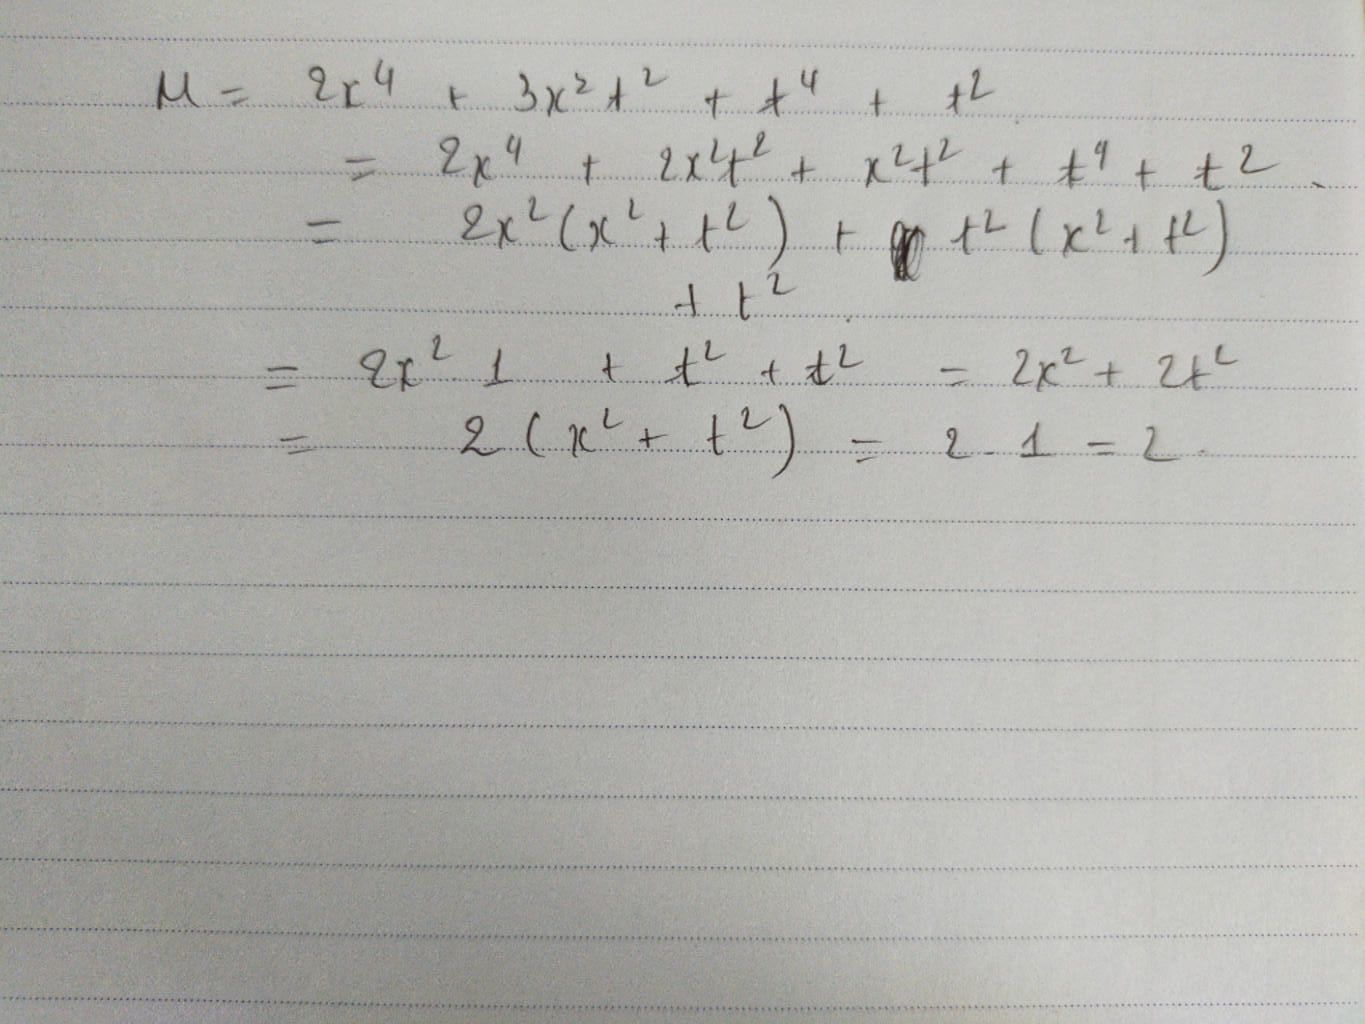 M = 2x⁴ + 3x²t² + t⁴ + t²
= 2x⁴ + 2x²t² + x²t² + t⁴ + t².
= 2x²(x² + t²) + t²(x² + t²)
+ t²
= 2x² 1 + t² + t² = 2x² + 2t²
= 2(x² + t²) = 2 . 1 = 2.